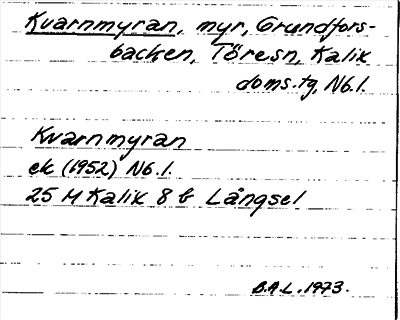 Kvarnmyran, myr, Grundfors-
backen, Töre sn, Kalix
doms.tg, Nb.l.
Kvarnmyran
ek (1952) Nb.l.
25 M Kalix 8 b Långsel
B.A.L. 1973.